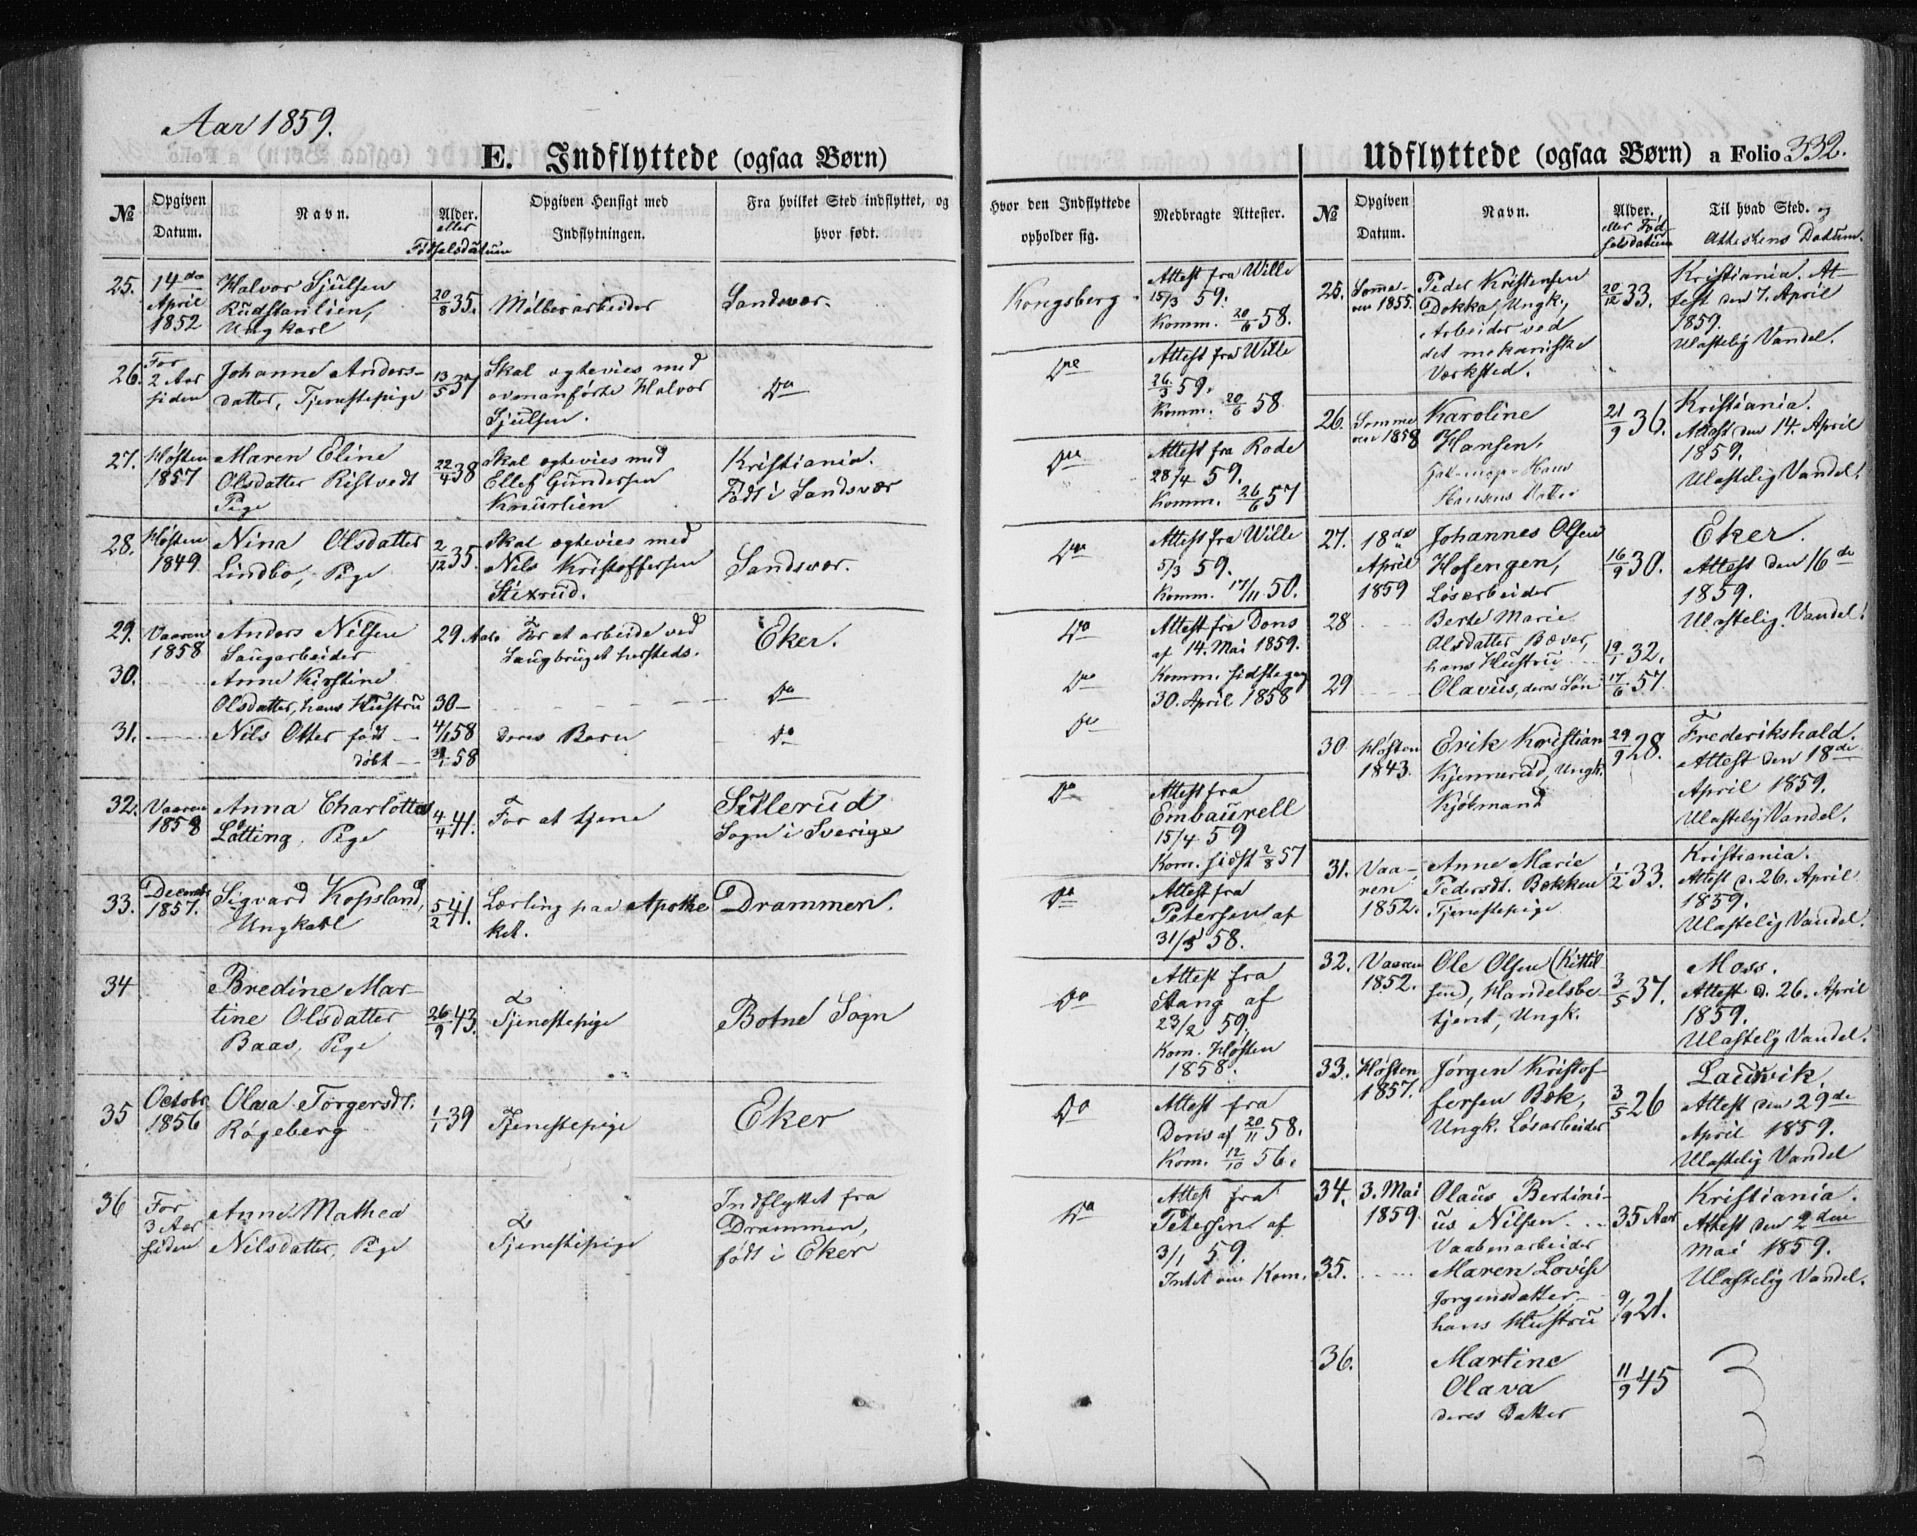 Aar 1859.
E. Indflyttede (ogsaa Børn)
№
Opgiven Datum.
Navn.
Alder. eller Fødselsdatum
Opgiven Hensigt med Indflytningen.
Fra hvilket Sted indflyttet, og hvor født.
25.
14de
April
1852
Halvor Sjulsen
Rudstanlien,
Ungkarl
20/8 35.
Mølberarbeider
Sandsvær.
26.
For
2 Aar
siden
Johanne Anders-
datter, Tjenestepige
13/5 37
Skal ægtevies med
ovenanførte Halvor
Sjulsen.
Do
27.
Høsten
1857
Maren Eline
Olsdatter Ristvedt
Pige
22/4 38
Skal ægtevies med
Ellef Gundersen
Knurlien
Kristiania.
Født i Sandsvær
28.
Høsten
1849.
Nina Olsdatter
Lindbo, Pige
2/12 35.
Skal ægtevies med
Nils Kristoffersen
Stixrud.
Sandsvær.
29.
Vaaren
1858
Anders Nilsen
Saugarbeider
29 Aar
For at arbeide ved
Saugbruget hersteds.
Eker.
30.
Anne Kirstine
Olsdatter, hans Hustru
30 —
Do
31.
Nils Otter født —
døbt —
4/1 58
58
Deres Barn
Do
32.
Vaaren
1858
Anna Charlotta
Lötting, Pige
4/4 41.
For at tjene
Sillerud
Sogn i Sverige
33.
Decembr
1857.
Sigvard Kopsland,
Ungkarl
5/2 41.
Lærling paa Apothe
ket.
Drammen.
34
Bredine Mar-
tine Olsdatter
Baas, Pige
26/9 43.
Tjenestepige
Botne Sogn
35
Octobr
1856
Olava Torgersdt.
Røgeberg
1/1 39
Tjenestepige
Eker
36
For
3 Aar
siden
Anne Mathea
Nilsdatter, Pige
Tjenestepige
Indflyttet fra
Drammen,
født i Eker
Hvor den Indflyttede opholder sig.
Medbragte Attester.
Kongsberg.
Attest fra Wille
15/3 59.
Komm. 20/6 58.
Do
Attest fra Wille
26/3 59.
Komm. 20/6 58
Do
Attest fra Rode
28/4 59.
Komm. 26/6 57
Do
Attest fra Wille
5/3 59.
Komm. 17/11 50.
Do
Attest fra Dons
af 14. Mai 1859.
Do
Komm. sidstegang
30. April 1858
Do
Do
Attest fra
Embaurell
15/4 59
Kom. sidst 2/8 57
Do
Attest fra
Petersen af
31/3 58.
Do
Attest fra
Stang af
23/2 59,
Kom. Høsten
1858.
Do
Attest fra
Dons af 20/11 58.
Kom. 12/10 56.
Do
Attest fra
Petersen af
3/1 59.
Intet om Kom.
Udflyttede (ogsaa Børn) a Folio 332.
№
Opgiven Datum.
Navn.
Alder. eller Fødselsdatum
Til hvad Sted. og
Attestens Datum.
25.
Somme-
ren 1855.
Peder Kristensen
Dokka, Ungk.,
Arbeider ved
det mekaniske
Værksted.
20/12 33.
Kristiania. At-
test den 7. April
1859.
Ulastelig Vandel.
26.
Somme
ren 1858
Karoline
Hansen,
Hans
Hansens Datter
21/9 36.
Kristiania.
Attest den 14. April
1859.
Ulastelig Vandel.
27.
18de
April
1859
Johannes Olsen
Hofengen,
Løsarbeider
16/9 30.
Eker.
Attest den 16de
1859.
Ulastelig Vandel.
28
Berte Marie
Olsdatter Bæver,
hans Hustru
19/1 32.
29
Olavus, deres Søn
17/6 57.
30
Høsten
1843.
Erik Kristian
Kjennerud, Ungk.
Kjøbmand
29/9 28.
Frederikshald.
Attest den 18de
April 1859.
Ulastelig Vandel.
31.
Vaa-
ren
1852.
Anne Marie
Pedersdt. Bakken
Tjenestepige
1/2 33.
Kristiania.
Attest d. 26. April
1859.
Ulastelig Vandel.
32.
Vaaren
1852.
Ole Olsen (Kittil
sen), Handelsbe
tjent, Ungk.
3/5 37.
Moss.
Attest d. 26. April
1859.
Ulastelig Vandel.
33.
Høsten
1857.
Jørgen Kristof
fersen Bæk,
Ungk. Løsarbeider
3/5 26
Laurvik.
Attest den 29de
April 1859.
Ulastelig Vandel
34.
3. Mai
1859.
Olaus Bertini-
us Nilsen
Vaabenarbeider
35 Aar
Kristiania.
Attest den 2den
Mai 1859.
Ulastelig Vandel.
35.
Maren Lovise
Jorgensdatter,
hans Hustru
9/9 21.
36.
Martine
Olava
deres Datter
11/9 45